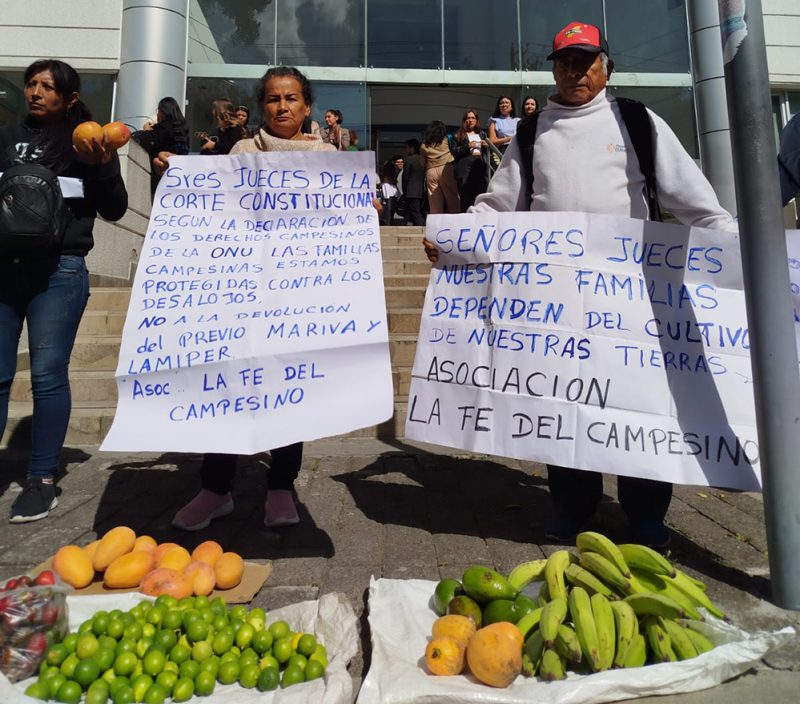 Sres JUECES DE LA
CORTE CONSTITUCIONAL
SEGÚN LA DECLARACIÓN DE
LOS DERECHOS CAMPESINOS
DE LA ONU LAS FAMILIAS
CAMPESINAS ESTAMOS
PROTEGIDAS CONTRA LOS
DESALOJOS.
NO A LA DEVOLUCION
del PREVIO MARIVA Y
LAMIPER.
ASOC.. LA FE DEL
CAMPESINO
SEÑORES JUECES
NUESTRAS FAMILIAS
DEPENDEN DEL CULTIVO
DE NUESTRAS TIERRAS
ASOCIACIÓN
LA FE DEL CAMPESINO